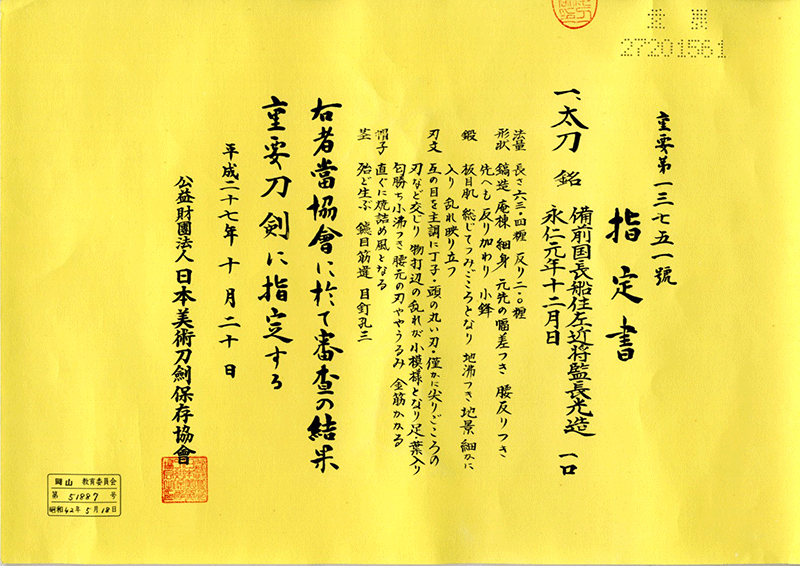 重要
27201561
重要第一三七五一號
指定書
一、太刀 銘 備前国長船住左近将監長光造 一口
永仁元年十二月日
法量 長さ六三・四糎 反り二・〇糎
形状 鎬造 庵棟 細身 元先の幅差つき 腰反りつき
先へも反り加わり 小鋒
鍛 板目肌 総じてつみごころとなり 地沸つき 地景細かに
入り 乱れ映り立つ
刃文 互の目を主調に丁子・頭の丸い刃・僅かに尖りごころの
刃など交じり 物打辺の乱れが小模様となり 足・葉入り
匂勝ち小沸つき 腰元の刃ややうるみ 金筋かかる
帽子 直ぐに焼詰め風となる
茎 殆ど生ぶ 鑢目筋違 目釘孔三
右者當協會に於て審査の結果
重要刀剣に指定する
平成二十七年十月二十日
公益財團法人日本美術刀劍保存協會
岡山 教育委員会
第 51887 号
昭和42年5月18日